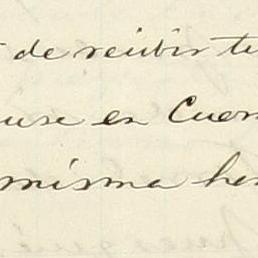 de recibir tu
use en Cuer
misma he